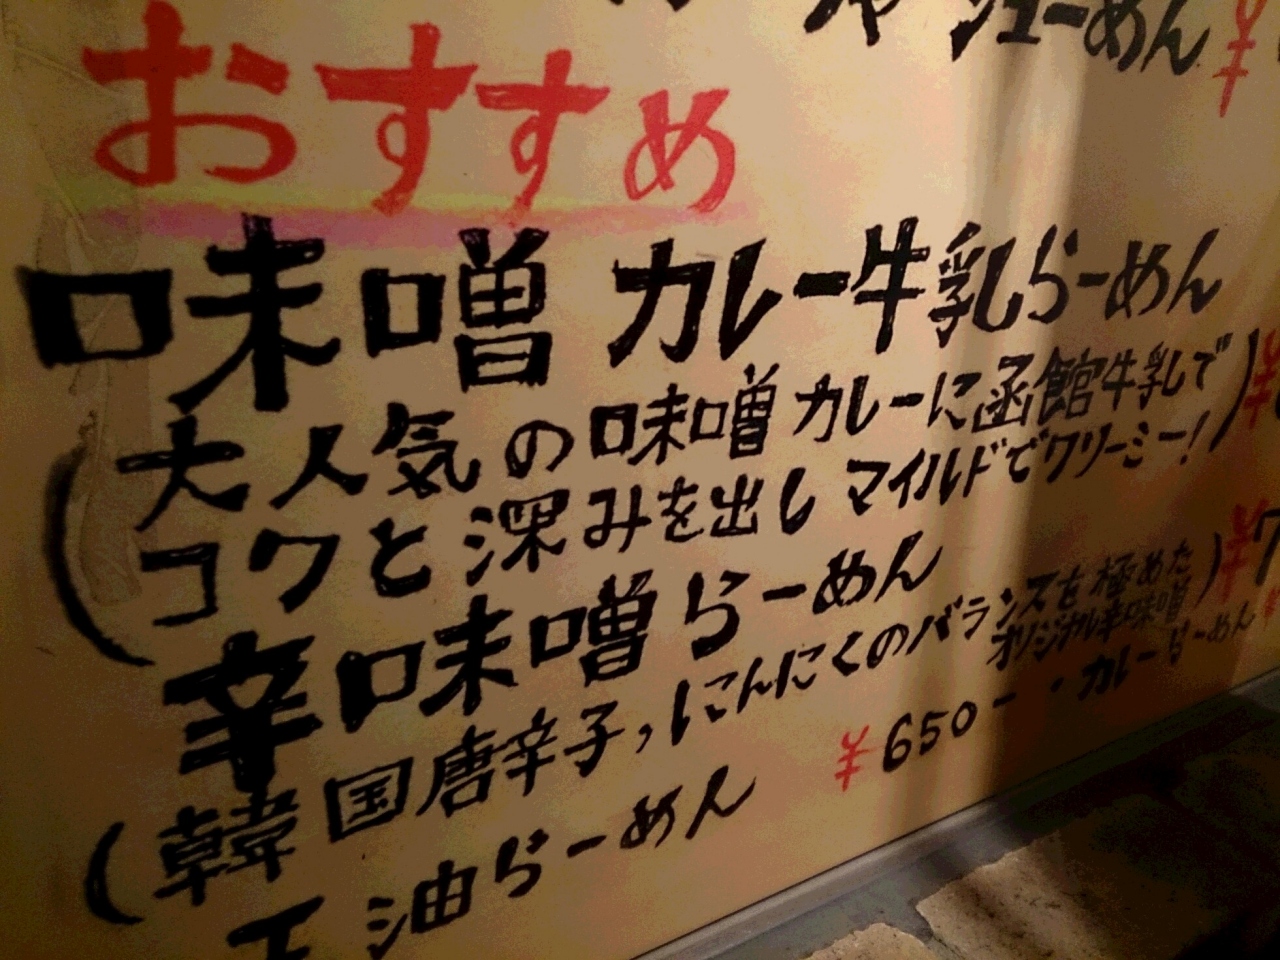 ャーシューめん ¥
おすすめ
味噌カレー牛乳らーめん
(大人気の味噌カレーに函館牛乳で
コクと深みを出しマイルドでクリーミー!) ¥
辛味噌らーめん
(韓国唐辛子,にんにくのバランスを極めた
オリジナル辛味噌) ¥7
油らーめん ¥650- ・カレーらーめん